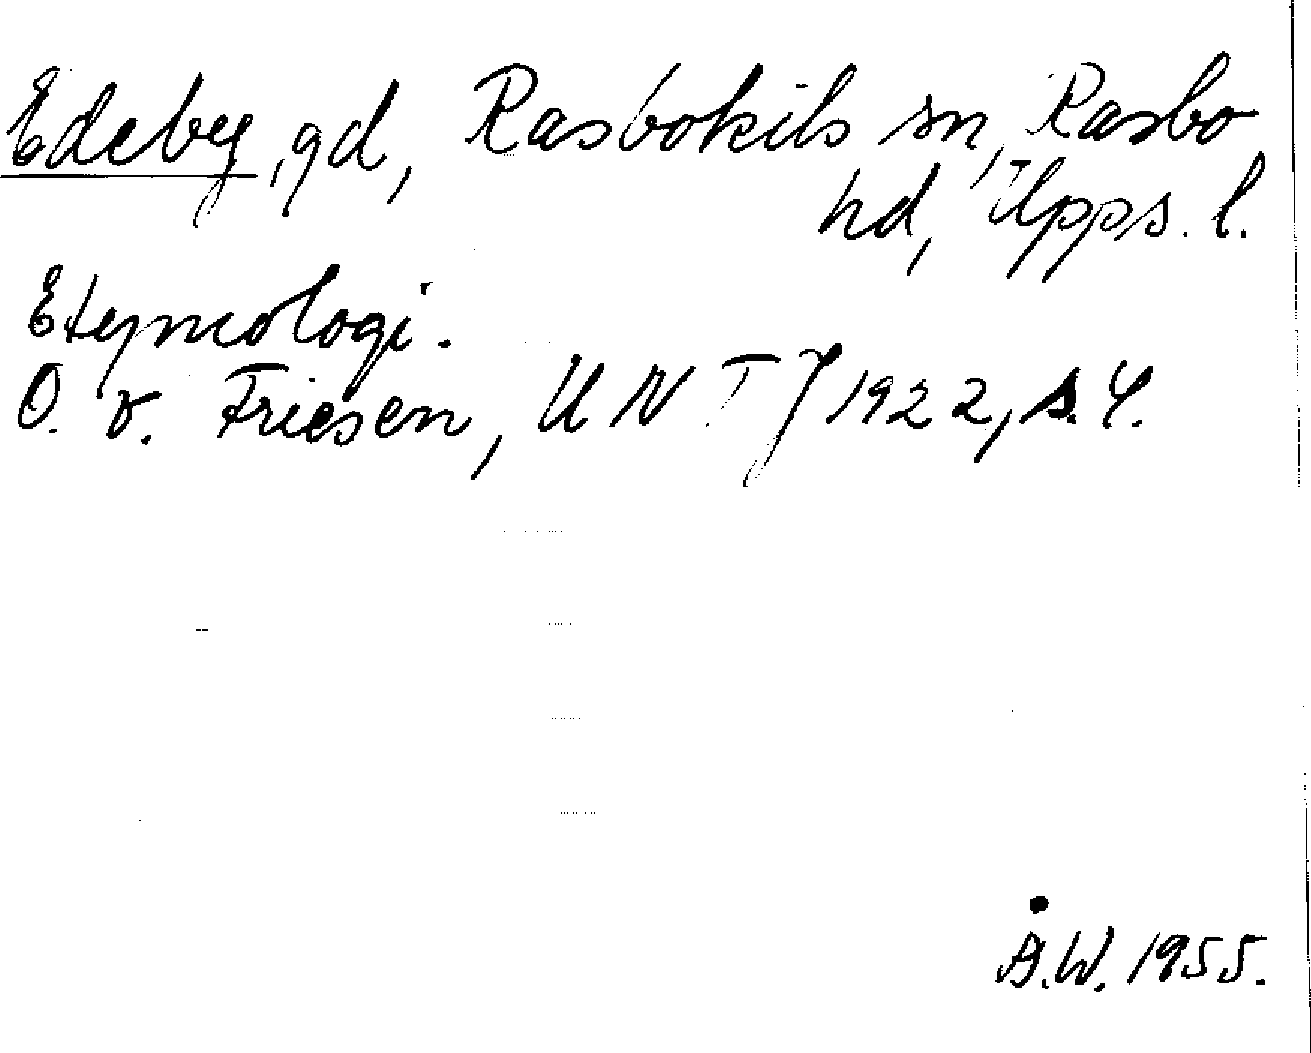 Edeby, gd, Rasbokils sn, Rasbo
hd, Upps. l.
Etymologi.
O. v. Friesen, UNT 7/ 1922, s. 4.
Å.W. 1955.